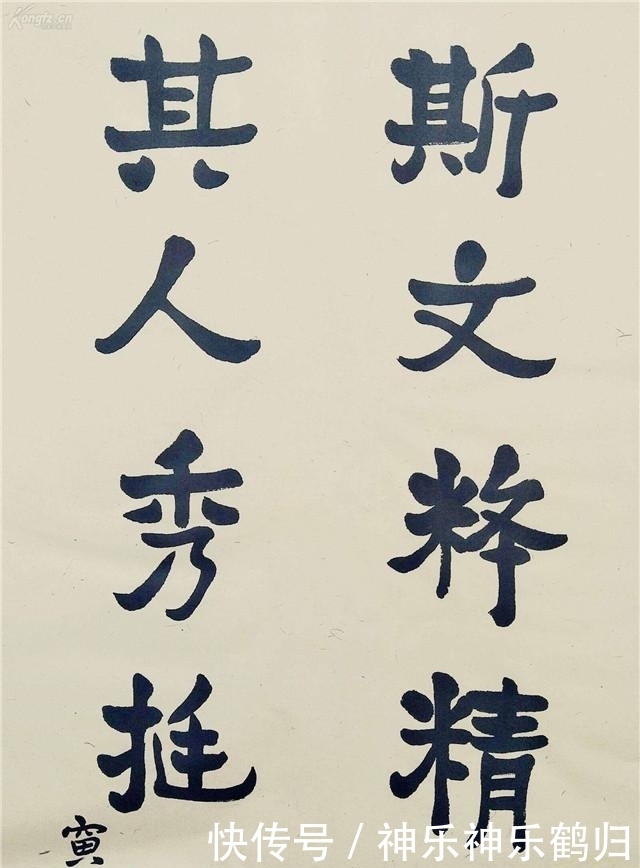 斯文粹精
其人秀挺
寅
Kongfz.cn
快传号 / 神乐神乐鹤归